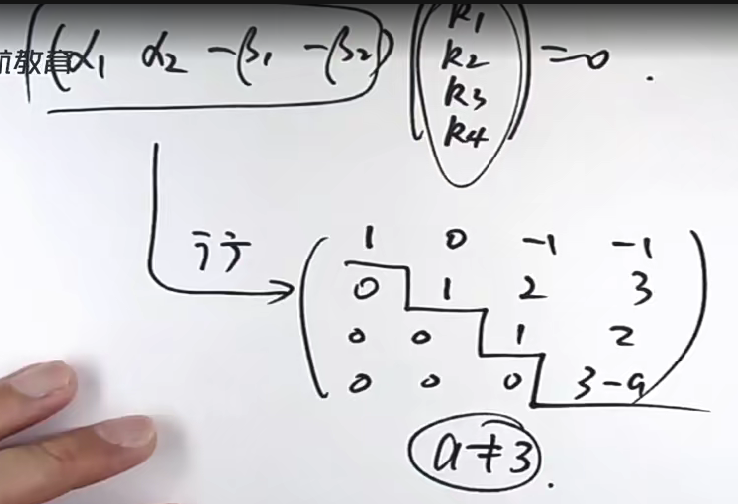 航教育
(α₁ α₂ -β₁ -β₂) (k₁ k₂ k₃ k₄) = 0.
行
1 0 -1 -1
0 1 2 3
0 0 1 2
0 0 0 3-a
a≠3.